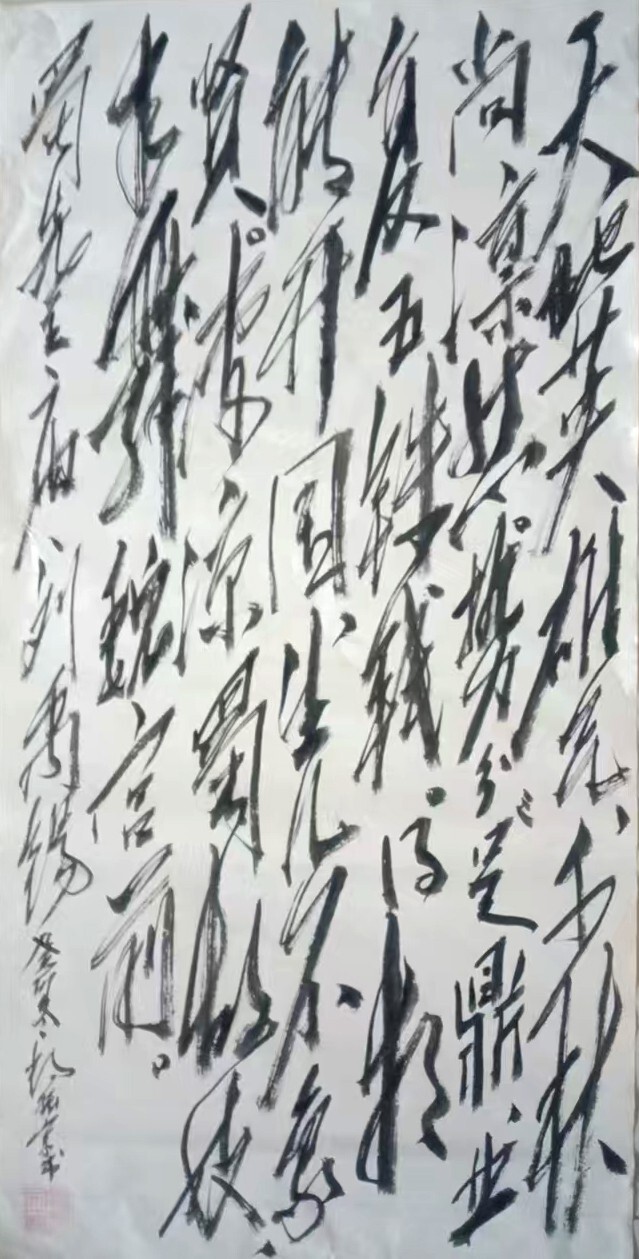 天地英雄气、千秋
尚凛然。势分三足鼎、业
复五铢钱。得相
能开国生儿不象
贤。凄凉蜀故妓
来舞魏宫前。
蜀先主庙 刘禹锡 癸卯冬